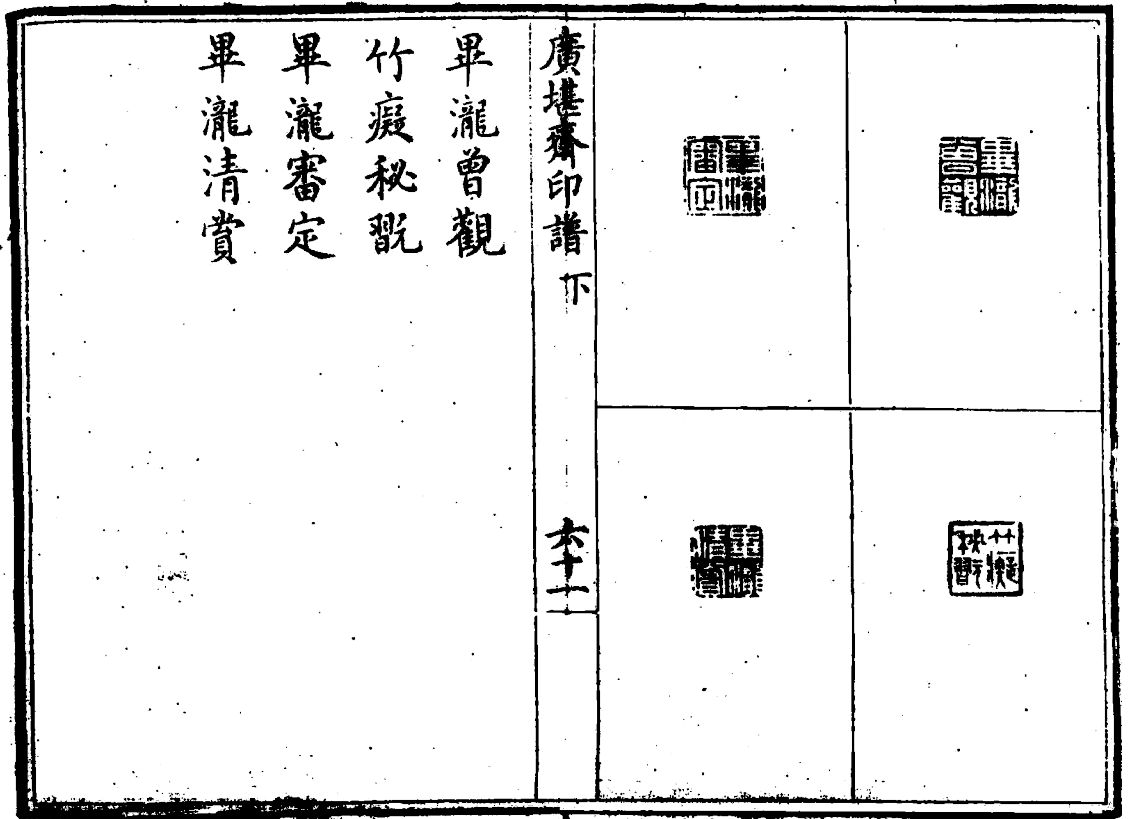 畢瀧曾觀
竹癡秘翫
畢瀧審定
畢瀧清賞
廣堪齋印譜 下
六十一
畢瀧曾觀
竹癡秘翫
畢瀧審定
畢瀧清賞